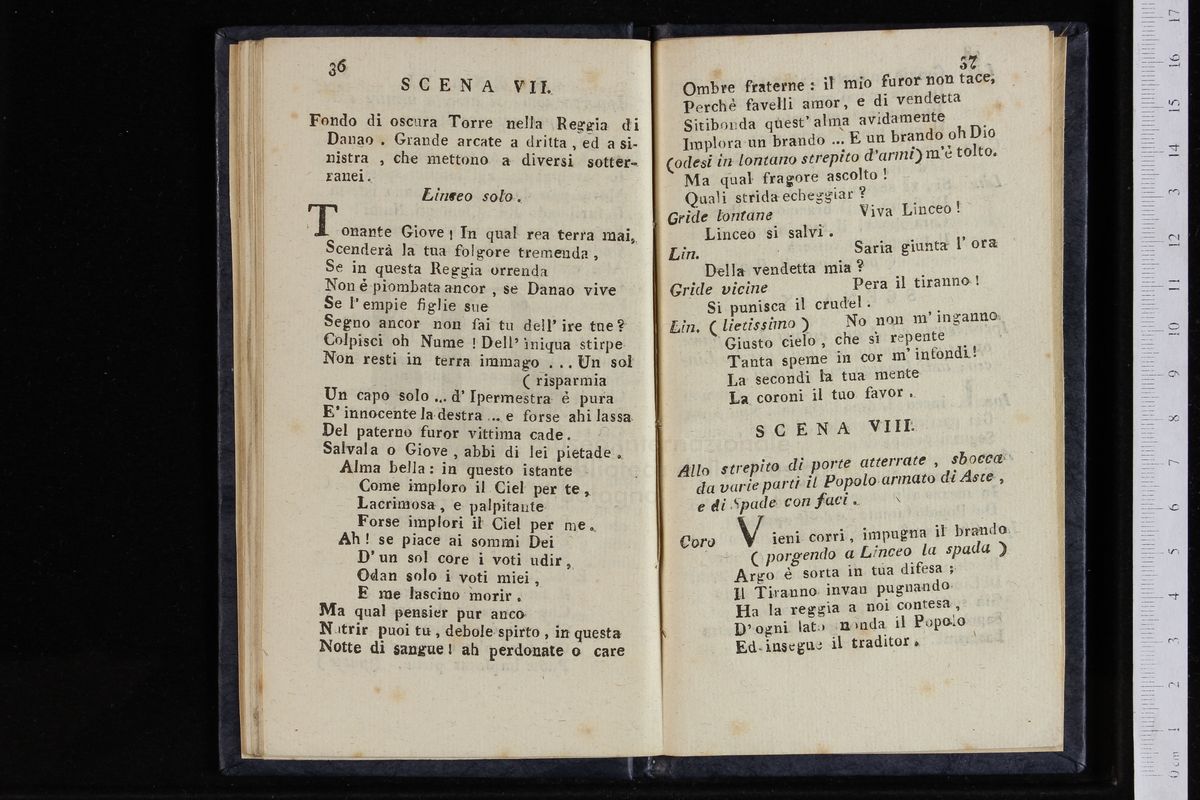 36
SCENA VII.
Fondo di oscura Torre nella Reggia di
Danao . Grande arcate a dritta , ed a si-
nistra , che mettono a diversi sotter-
ranei.
Linceo solo.
Tonante Giove! In qual rea terra mai,
Scenderà la tua folgore tremenda ,
Se in questa Reggia orrenda
Non è piombata ancor , se Danao vive
Se l' empie figlie sue
Segno ancor non fai tu dell' ire tue?
Colpisci oh Nume ! Dell' iniqua stirpe
Non resti in terra immago ... Un sol
( risparmia
Un capo solo ... d' Ipermestra è pura
E' innocente la destra ... e forse ahi lassa
Del paterno furor vittima cade.
Salvala o Giove , abbi di lei pietade.
Alma bella: in questo istante
Come imploro il Ciel per te,
Lacrimosa , e palpitante
Forse implori il Ciel per me.
Ah! se piace ai sommi Dei
D' un sol core i voti udir,
Odan solo i voti miei,
E me lascino morir.
Ma qual pensier pur anco
Nutrir puoi tu, debole spirto, in questa
Notte di sangue! ah perdonate o care
37
Ombre fraterne: il mio furor non tace,
Perchè favelli amor, e di vendetta
Sitibonda quest' alma avidamente
Implora un brando ... E un brando oh Dio
(odesi in lontano strepito d'armi) m'è tolto.
Ma qual fragore ascolto !
Quali strida echeggiar ?
Gride lontane Viva Linceo!
Linceo si salvi.
Lin. Saria giunta l' ora
Della vendetta mia ?
Gride vicine Pera il tiranno!
Si punisca il crudel.
Lin. ( lietissimo ) No non m' inganno
Giusto cielo , che sì repente
Tanta speme in cor m' infondi!
La secondi la tua mente
La coroni il tuo favor.
SCENA VIII.
Allo strepito di porte atterrate , sbocca
da varie parti il Popolo armato di Aste ,
e di Spade con faci.
Coro Vieni corri, impugna il brando
( porgendo a Linceo la spada )
Argo è sorta in tua difesa ;
Il Tiranno invan pugnando
Ha la reggia a noi contesa ,
D' ogni lato inonda il Popolo
Ed insegue il traditor.
0 cm 1 2 3 4 5 6 7 8 9 10 11 12 13 14 15 16 17